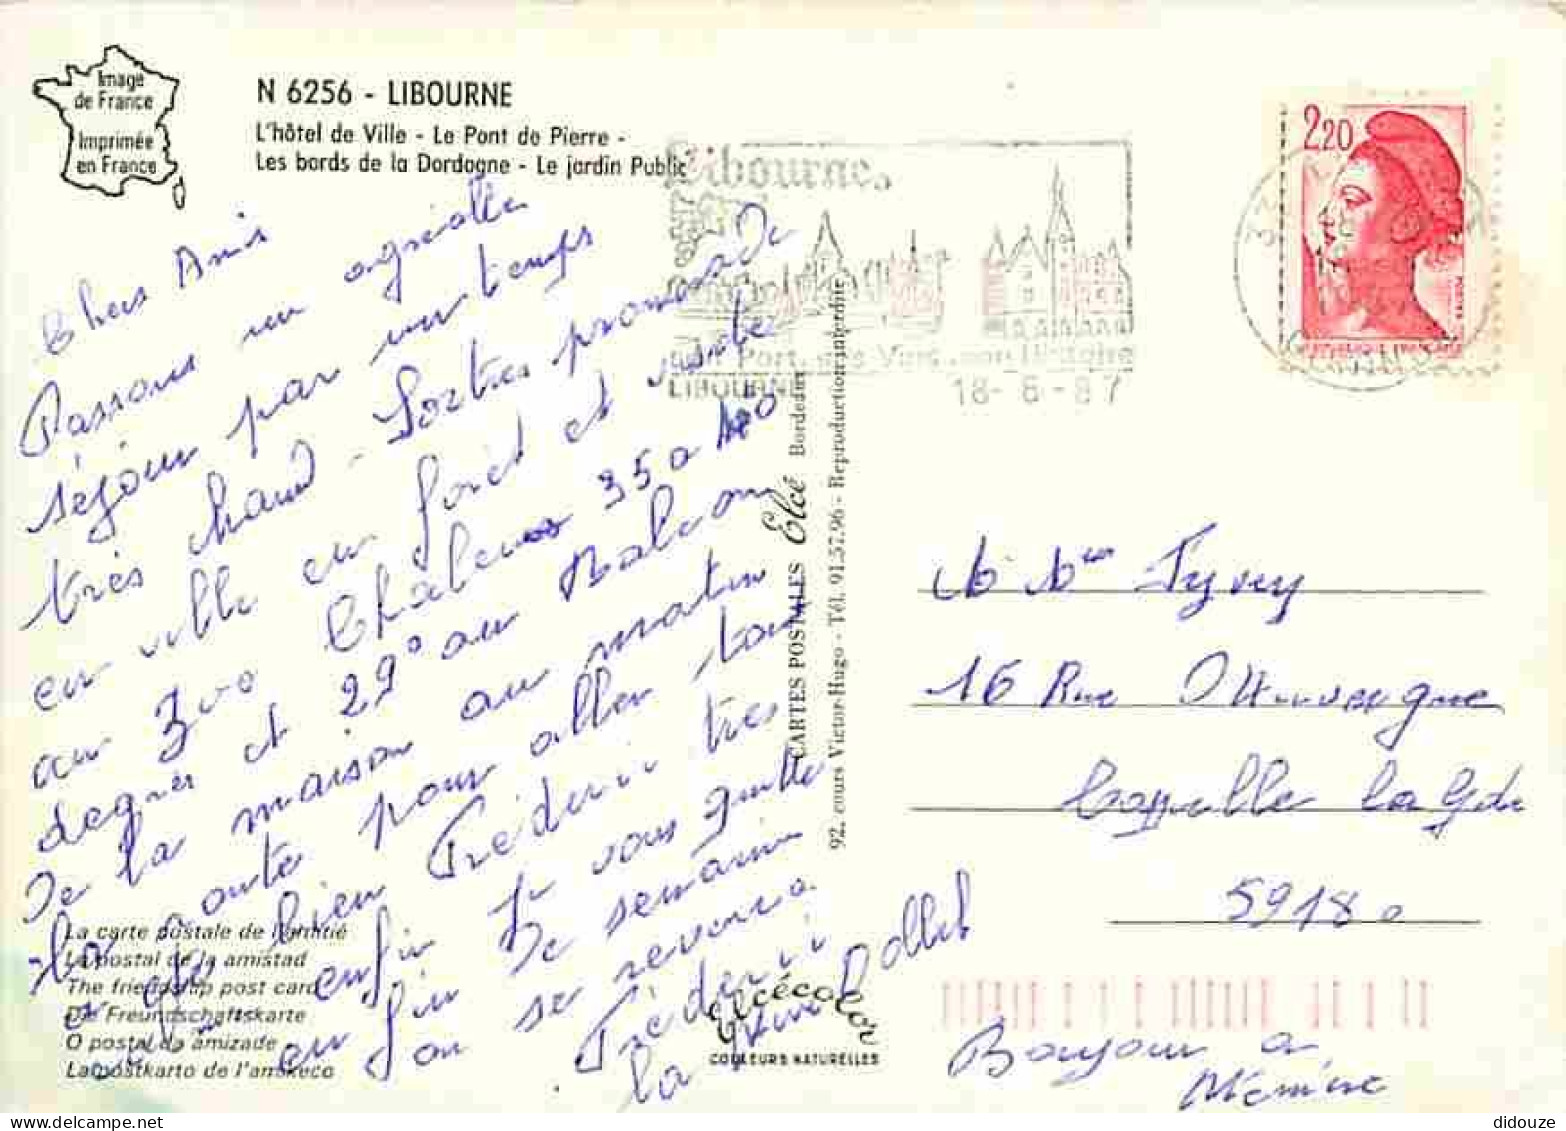 Image
de France
Imprimée
en France
N 6256 - LIBOURNE
L'hôtel de Ville - Le Pont de Pierre -
Les bords de la Dordogne - Le jardin Public
Libourne
Port
LIBOURNE
18-6-87
2,20
Chers Amis
Passons un agréable
séjour par un temps
très chaud - Sorties promenade
en ville en forêt et
au Zoo Chaleurs 35 a 40
degrés et 29° au Balcon
De la maison au matin
pour aller
bien Frédéric très
enfin je vous quitte
en fin De semaine
on se reverra
Frédéric
La Dollet
La carte postale de l'amitié
La postal de la amistad
The friendship post card
Die Freundschaftskarte
O postal da amizade
La postkarto de l'amikeco
CARTES POSTALES Elcé Bordeaux
92, cours Victor-Hugo - Tél. 91.57.96 - Reproduction interdite
Elcécolor
COULEURS NATURELLES
16 Rue D'Auvergne
Cappelle la Gde
59180
Bonjour a
Mémère
didouze